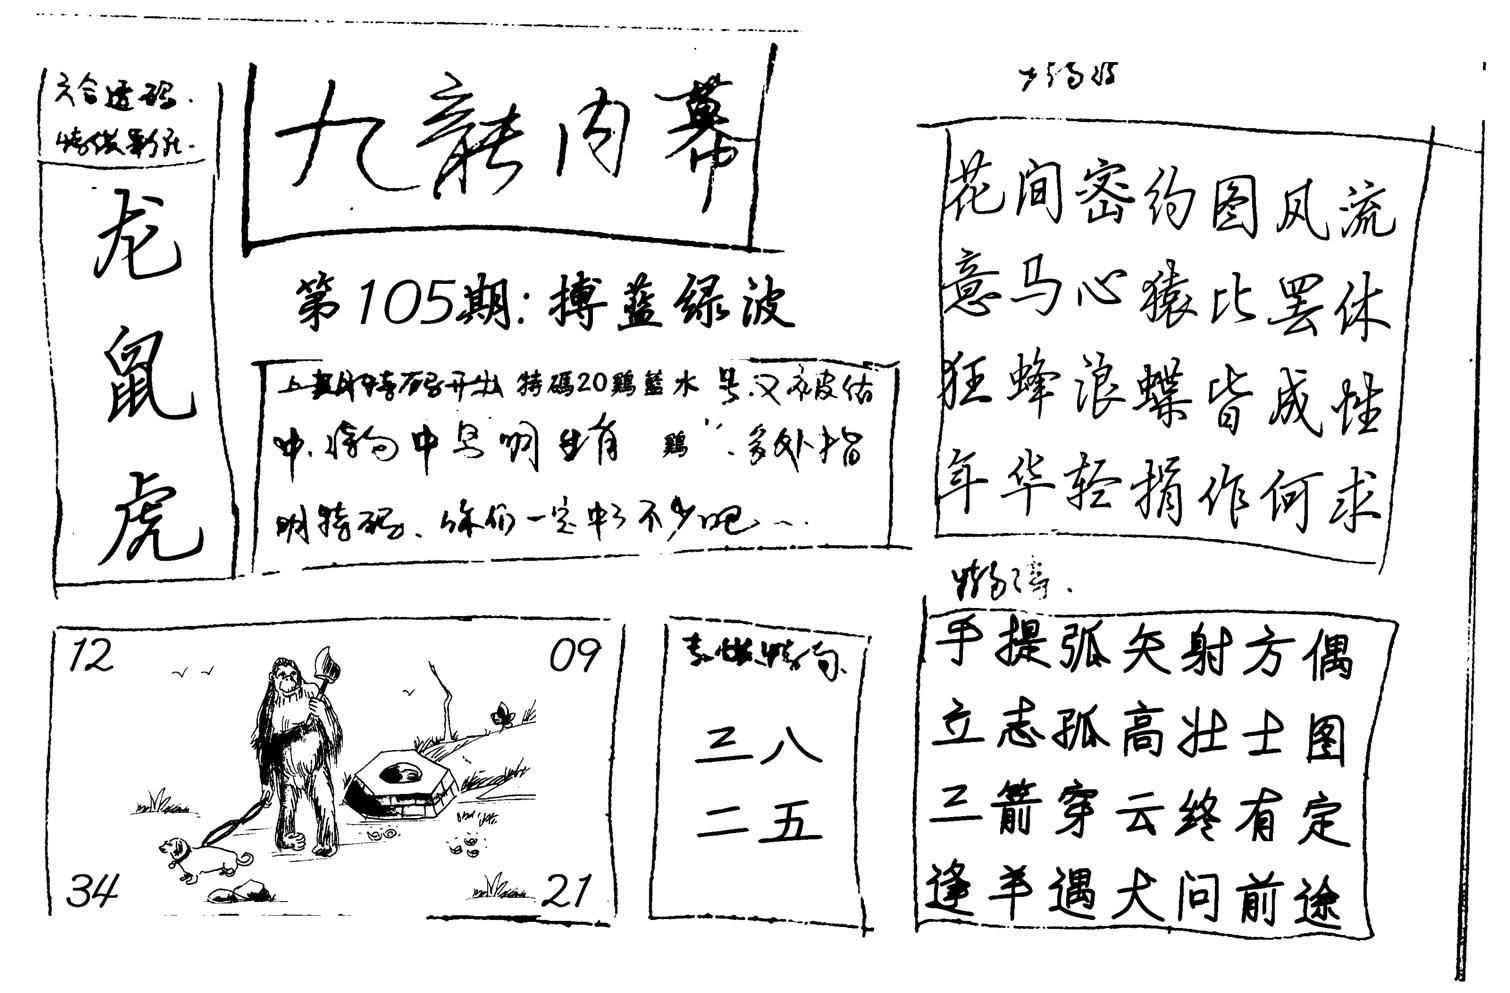 六合透码.
九龍内幕
龙
鼠
虎
第105期:搏蓝绿波
特码开出 特碼20鷄藍水 号.又被估
中.特句中 明 生肖 鷄".多处指
明特码、你们一定中了不少吧
12
09
34
21
三八
二五
花间密约图风流
意马心猿比罢休
狂蜂浪蝶皆成性
年华轻捐作何求
手提弧矢射方偶
立志孤高壮士图
三箭穿云终有定
逢羊遇犬问前途